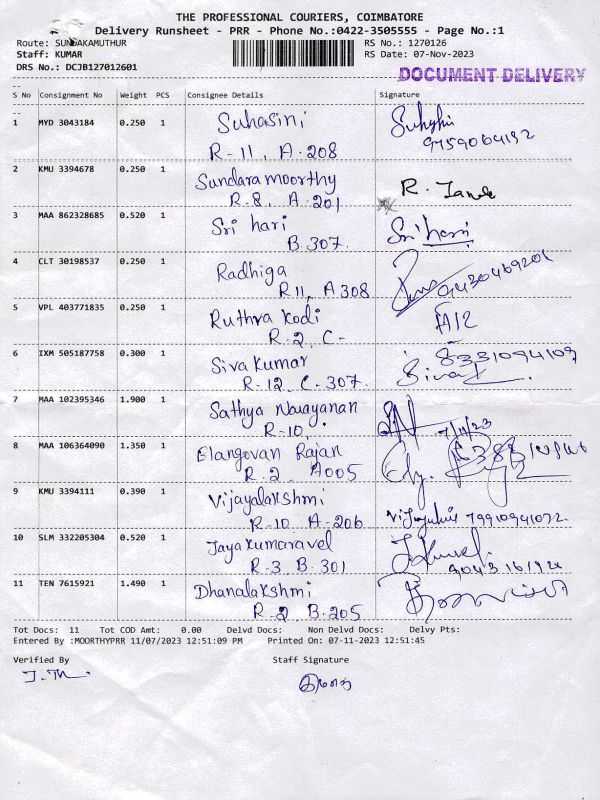 THE PROFESSIONAL COURIERS, COIMBATORE
Delivery Runsheet - PRR - Phone No.:0422-3505555 - Page No.:1
Route: SUNDAKAMUTHUR RS No.: 1270126
Staff: KUMAR RS Date: 07-Nov-2023
DRS No.: DCJB127012601
DOCUMENT DELIVERY
S No Consignment No Weight PCS Consignee Details Signature
1 MYD 3043184 0.250 1 Suhasini
R-11, A.208
2 KMU 3394678 0.250 1 Sundaramoorthy
R-8, A-201
3 MAA 862328685 0.520 1 Sri hari Sri hari
B.307.
4 CLT 30198537 0.250 1 Radhiga
R11, A308
5 VPL 403771835 0.250 1 Ruthra kodi A12
R-2, C-
6 IXM 505187758 0.300 1 Siva kumar Siva
R-12, C-307.
7 MAA 102395346 1.900 1 Sathya Narayanan
R-10, 7/11/23
8 MAA 106364090 1.350 1 Elangovan Rajan
R-2, A005
9 KMU 3394111 0.390 1 Vijayalakshmi
R-10, A-206
10 SLM 332205304 0.520 1 Jayakumaravel
R-3 B.301
11 TEN 7615921 1.490 1 Dhanalakshmi
R-2, B-205
Tot Docs: 11 Tot COD Amt: 0.00 Delvd Docs: Non Delvd Docs: Delvy Pts:
Entered By :MOORTHYPRR 11/07/2023 12:51:09 PM Printed On: 07-11-2023 12:51:45
Verified By Staff Signature